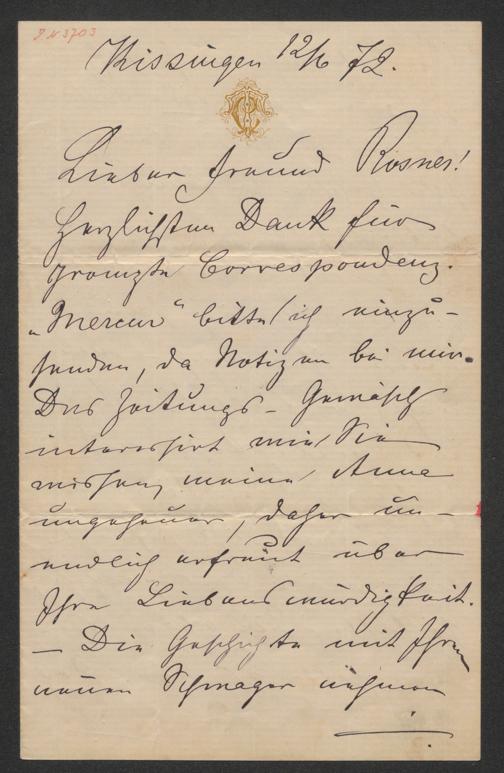 J.N 3703
Kissingen 12/6 72.
Lieber Freund Rosner!
Herzlichsten Dank für
prompte Correspondenz.
„Mercur“ bitte ich einzu-
senden, da Notizen bei mir.
Das Zeitungs-Gewäsch
interessirt wie Sie
wissen, meine Anna
ungeheuer, daher un-
endlich erfreut über
Ihre Liebenswürdigkeit.
— Die Geschichte mit Ihrem
neuen Schwager